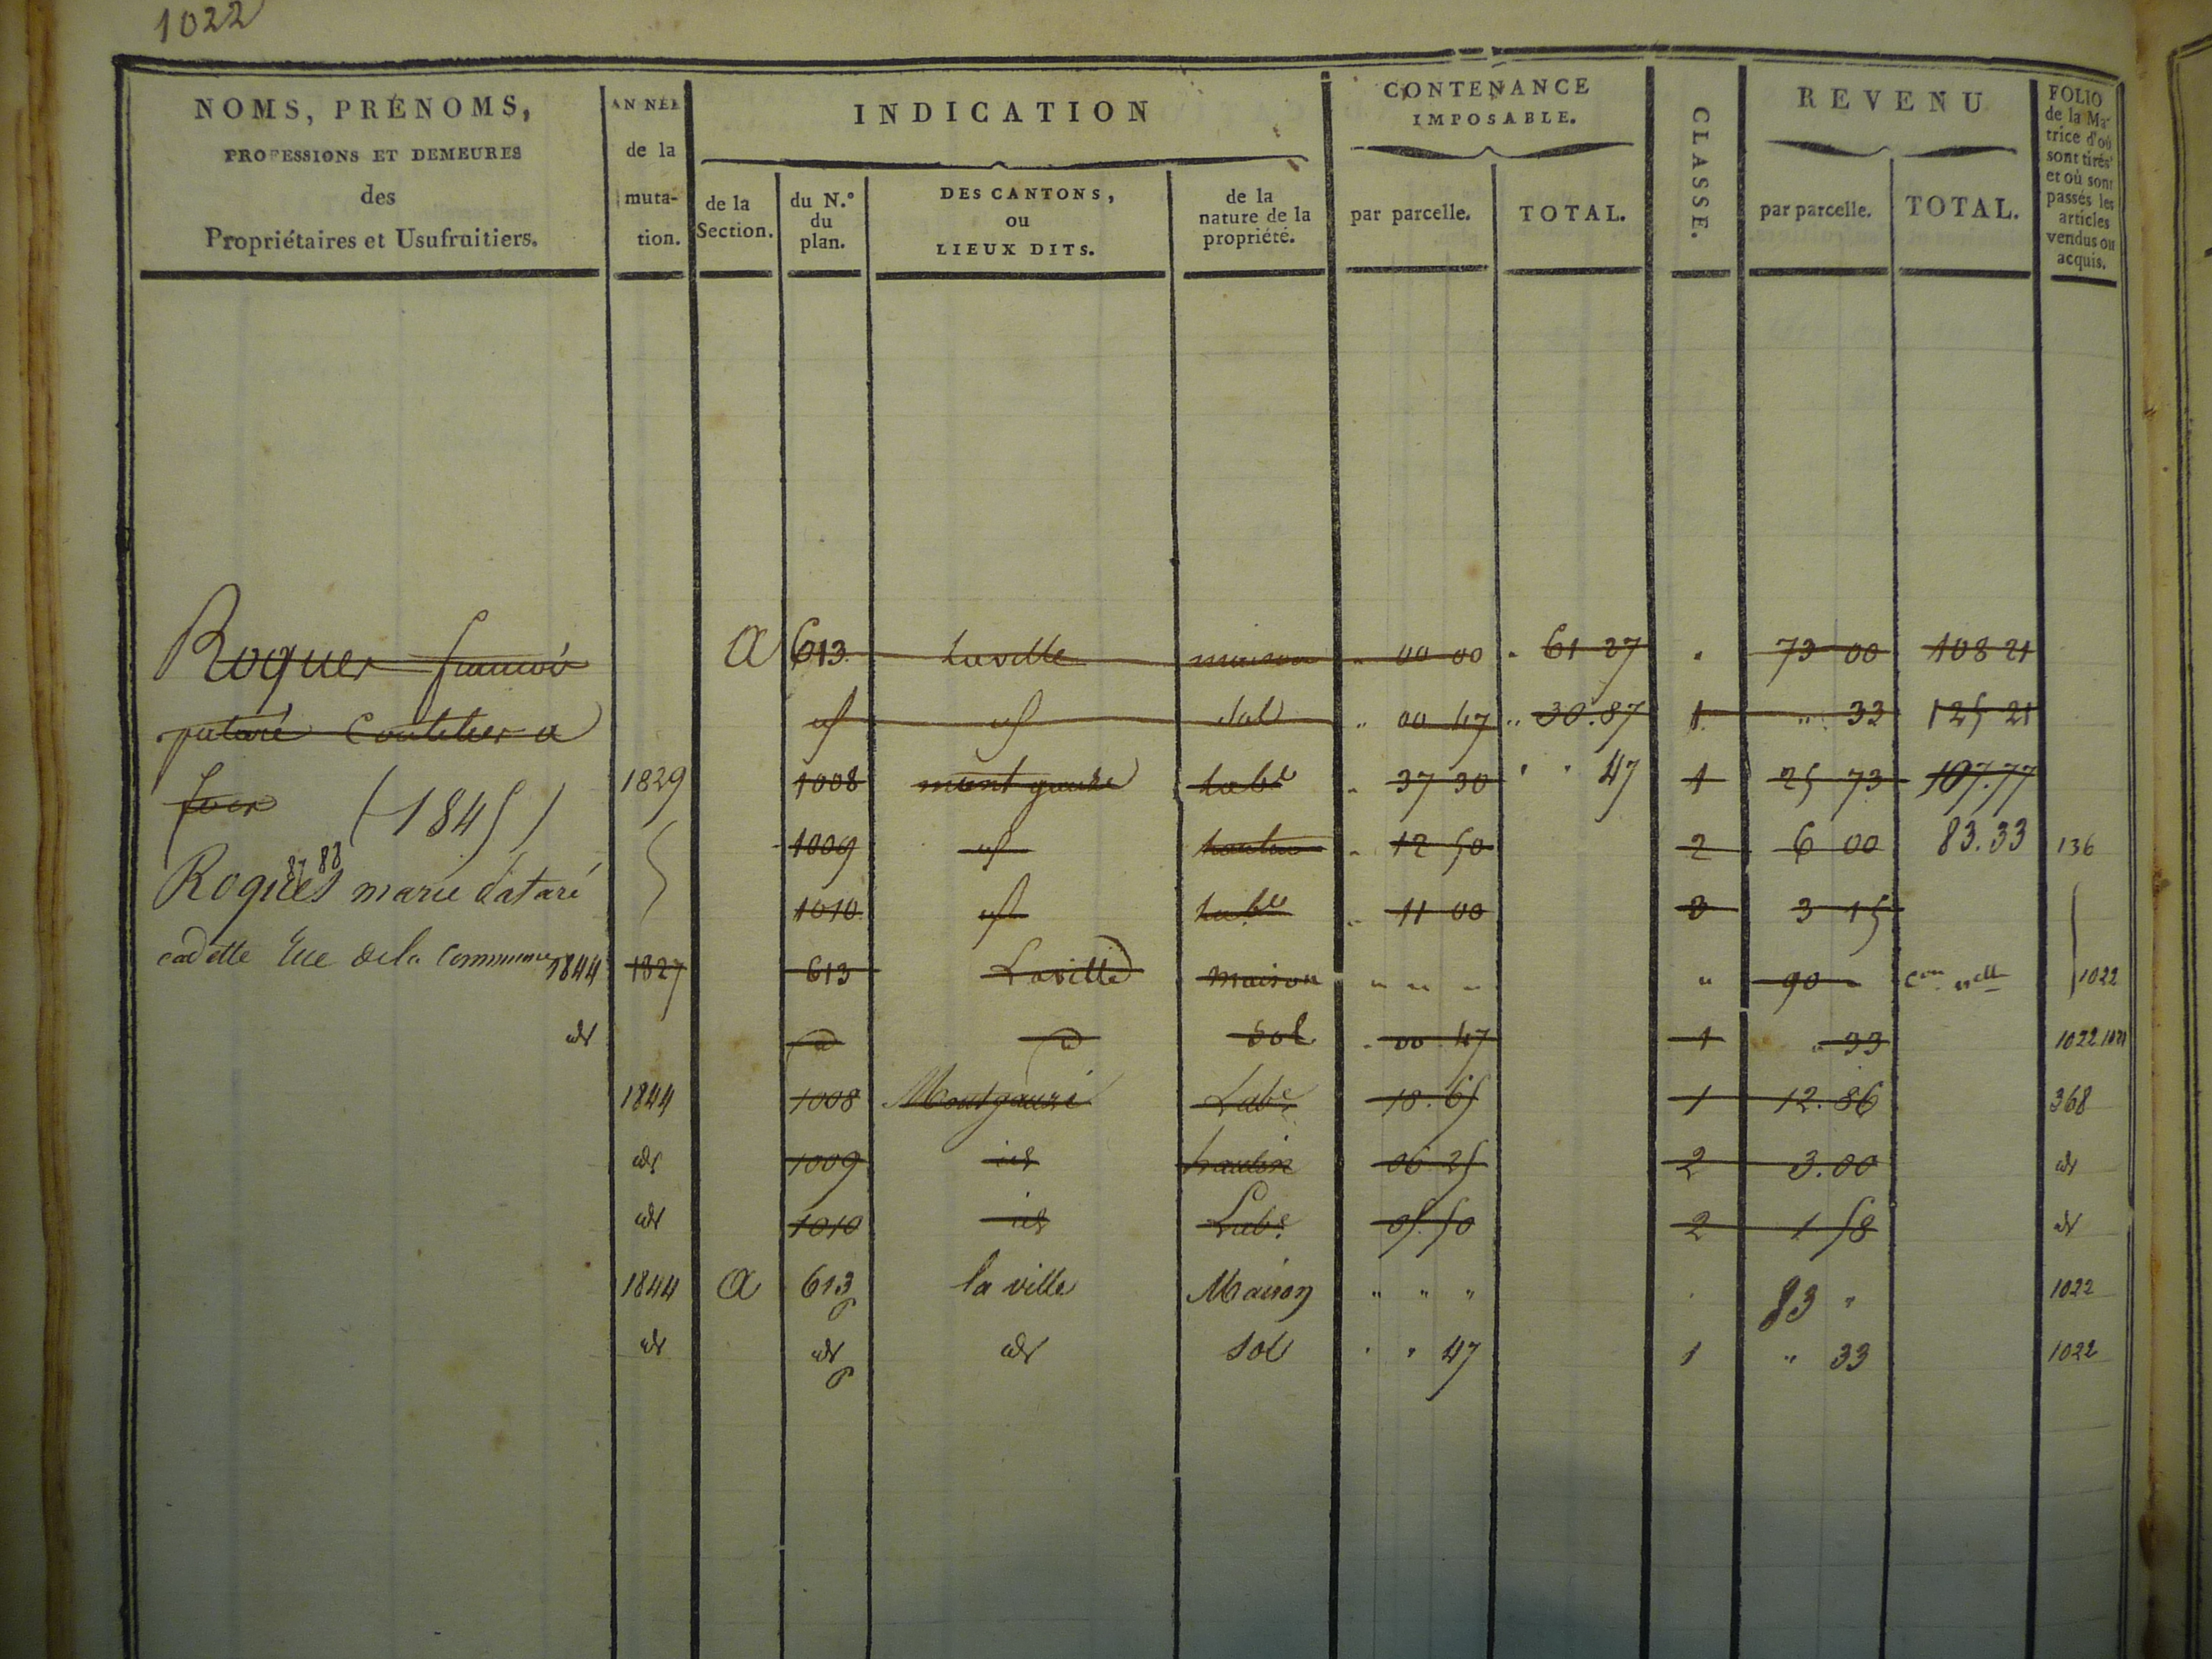 1022
NOMS, PRÉNOMS,
PROFESSIONS ET DEMEURES
des
Propriétaires et Usufruitiers.
ANNÉE
de la
muta-
tion.
INDICATION
de la
Section.
du N.°
du
plan.
DES CANTONS,
ou
LIEUX DITS.
de la
nature de la
propriété.
CONTENANCE
IMPOSABLE.
par parcelle.
TOTAL.
CLASSE.
REVENU
par parcelle.
TOTAL.
FOLIO
de la Ma-
trice d'où
sont tirés
et où sont
passés les
articles
vendus ou
acquis.
Roques A 613 Laville maison " 00 00 " 61 27 " 73 00 108 21
a sol " 00 47 " 30.87 1 " 33 125 21
foix (1845) 1829 1008 labe " 37 30 " " 47 1 25 73 107.77
87 88
1009 hautin " 12 50 2 6 00 83.33 136
Roques marie dataré 1010 labe " 11 00 3 15
cadette rue de la commune 1844 1827 613 Laville maison " " " " 90 " con nlle 1022
id sol " 00 47 1 " 33 1022
1844 1008 Montgauzé Labe 18.65 1 12.86 368
id 1009 id hautin 06 25 2 3.00 id
id 1010 id Labe 05.50 2 1 58 id
1844 A 613 p la ville Maison " " " 83 " 1022
id id p id sol " " 47 1 " 33 1022